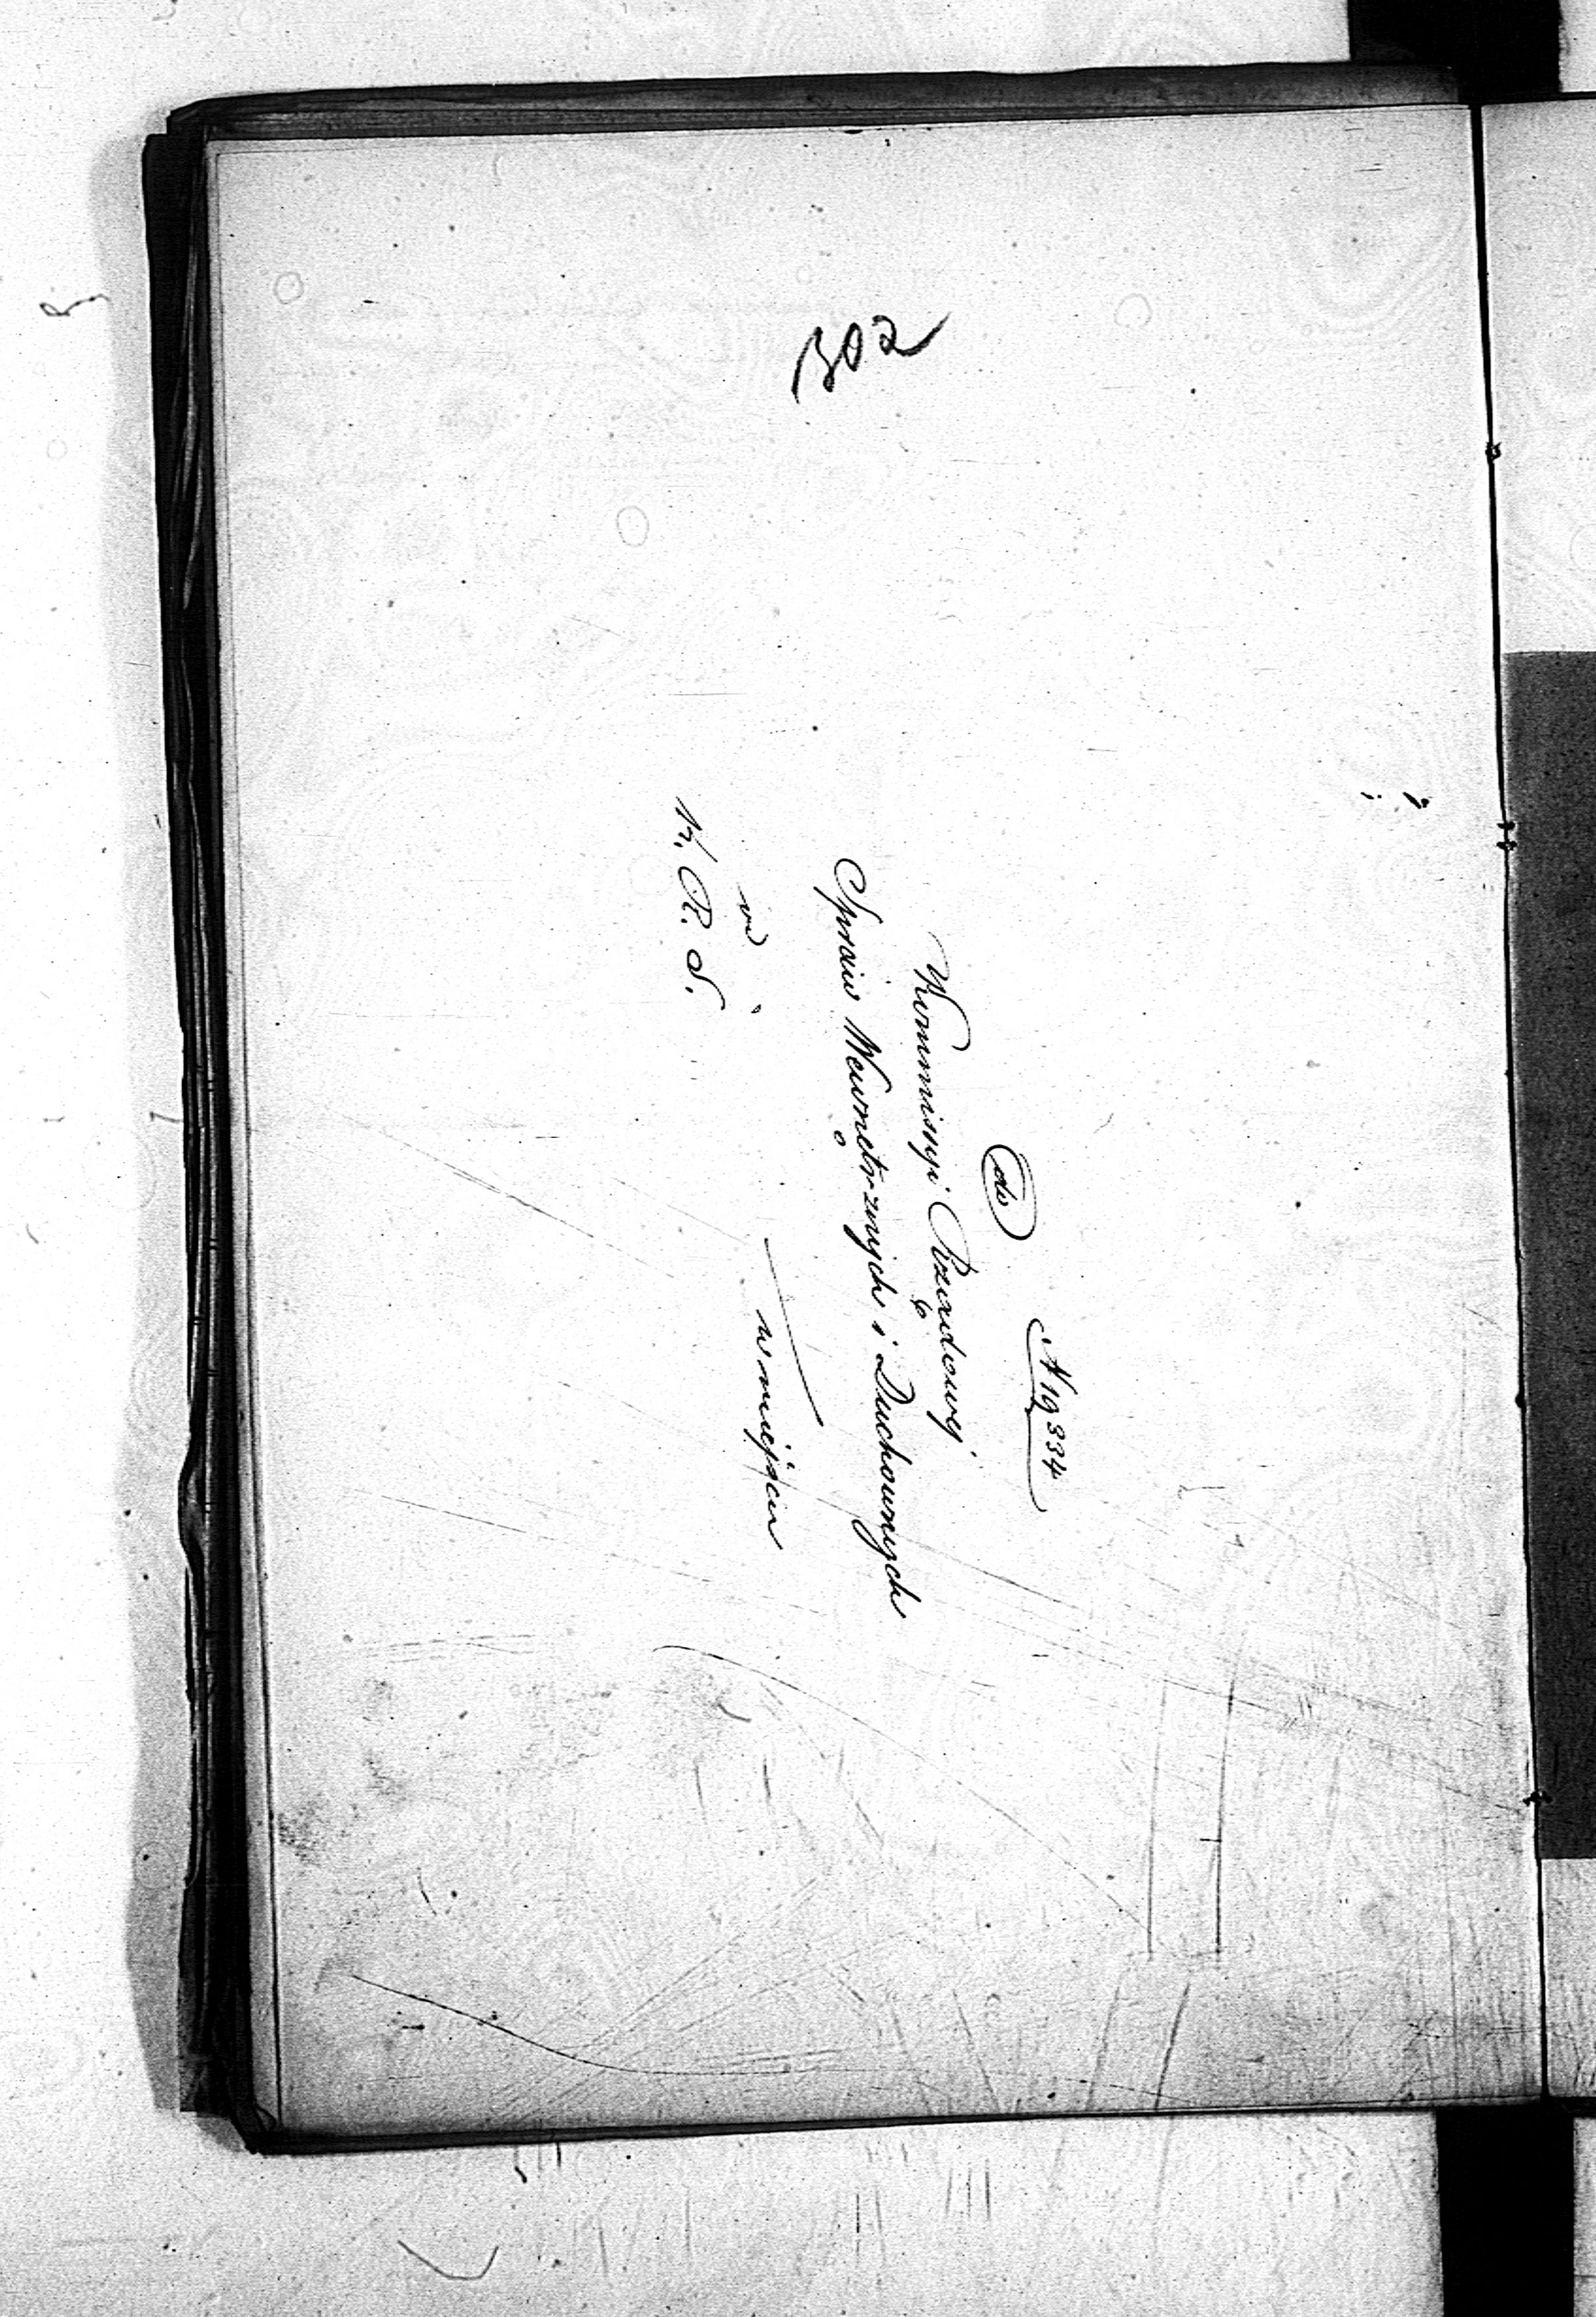 302
N 19334
do
Kommissyi Rządowej
Spraw Wewnętrznych i Duchownych
w miejscu
od
K. R. S.